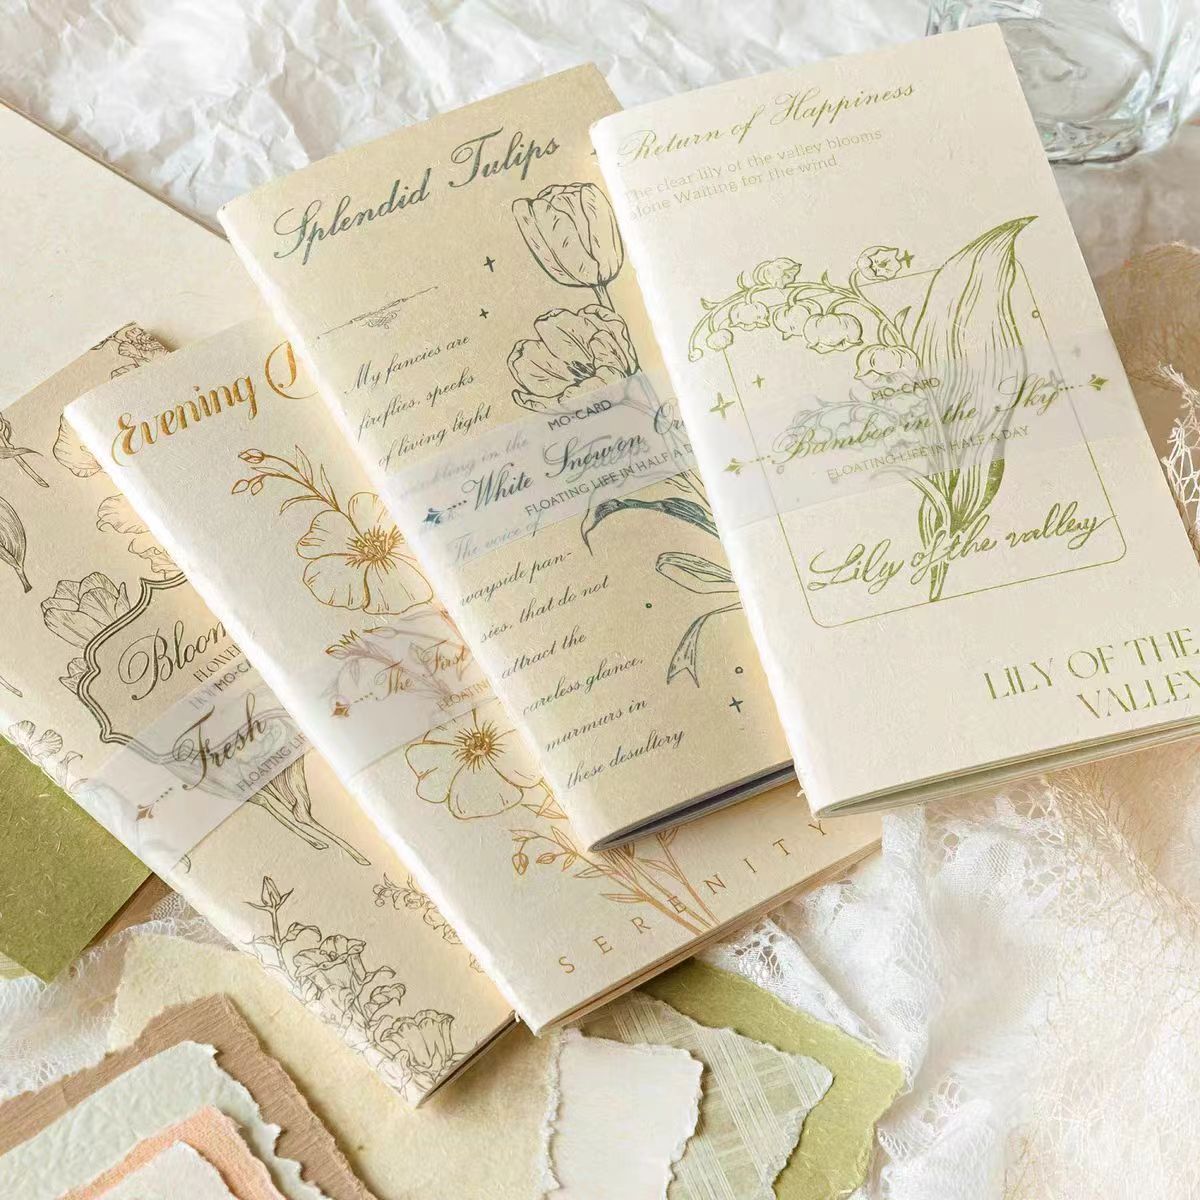 Return of Happiness
The clear lily of the valley blooms
alone Waiting for the wind
MO-CARD
Bamboo in the Sky
FLOATING LIFE IN HALF A DAY
Lily of the valley
LILY OF THE
VALLEY
Splendid Tulips
My fancies are
fireflies, specks
of living light
MO-CARD
White Snow on
FLOATING LIFE IN HALF A
The voice of
wayside pan-
sies, that do not
attract the
careless glance,
murmurs in
these desultory
Evening
The First
FLOATING
SERENITY
Bloom
MO-CA
Fresh
FLOATING LI